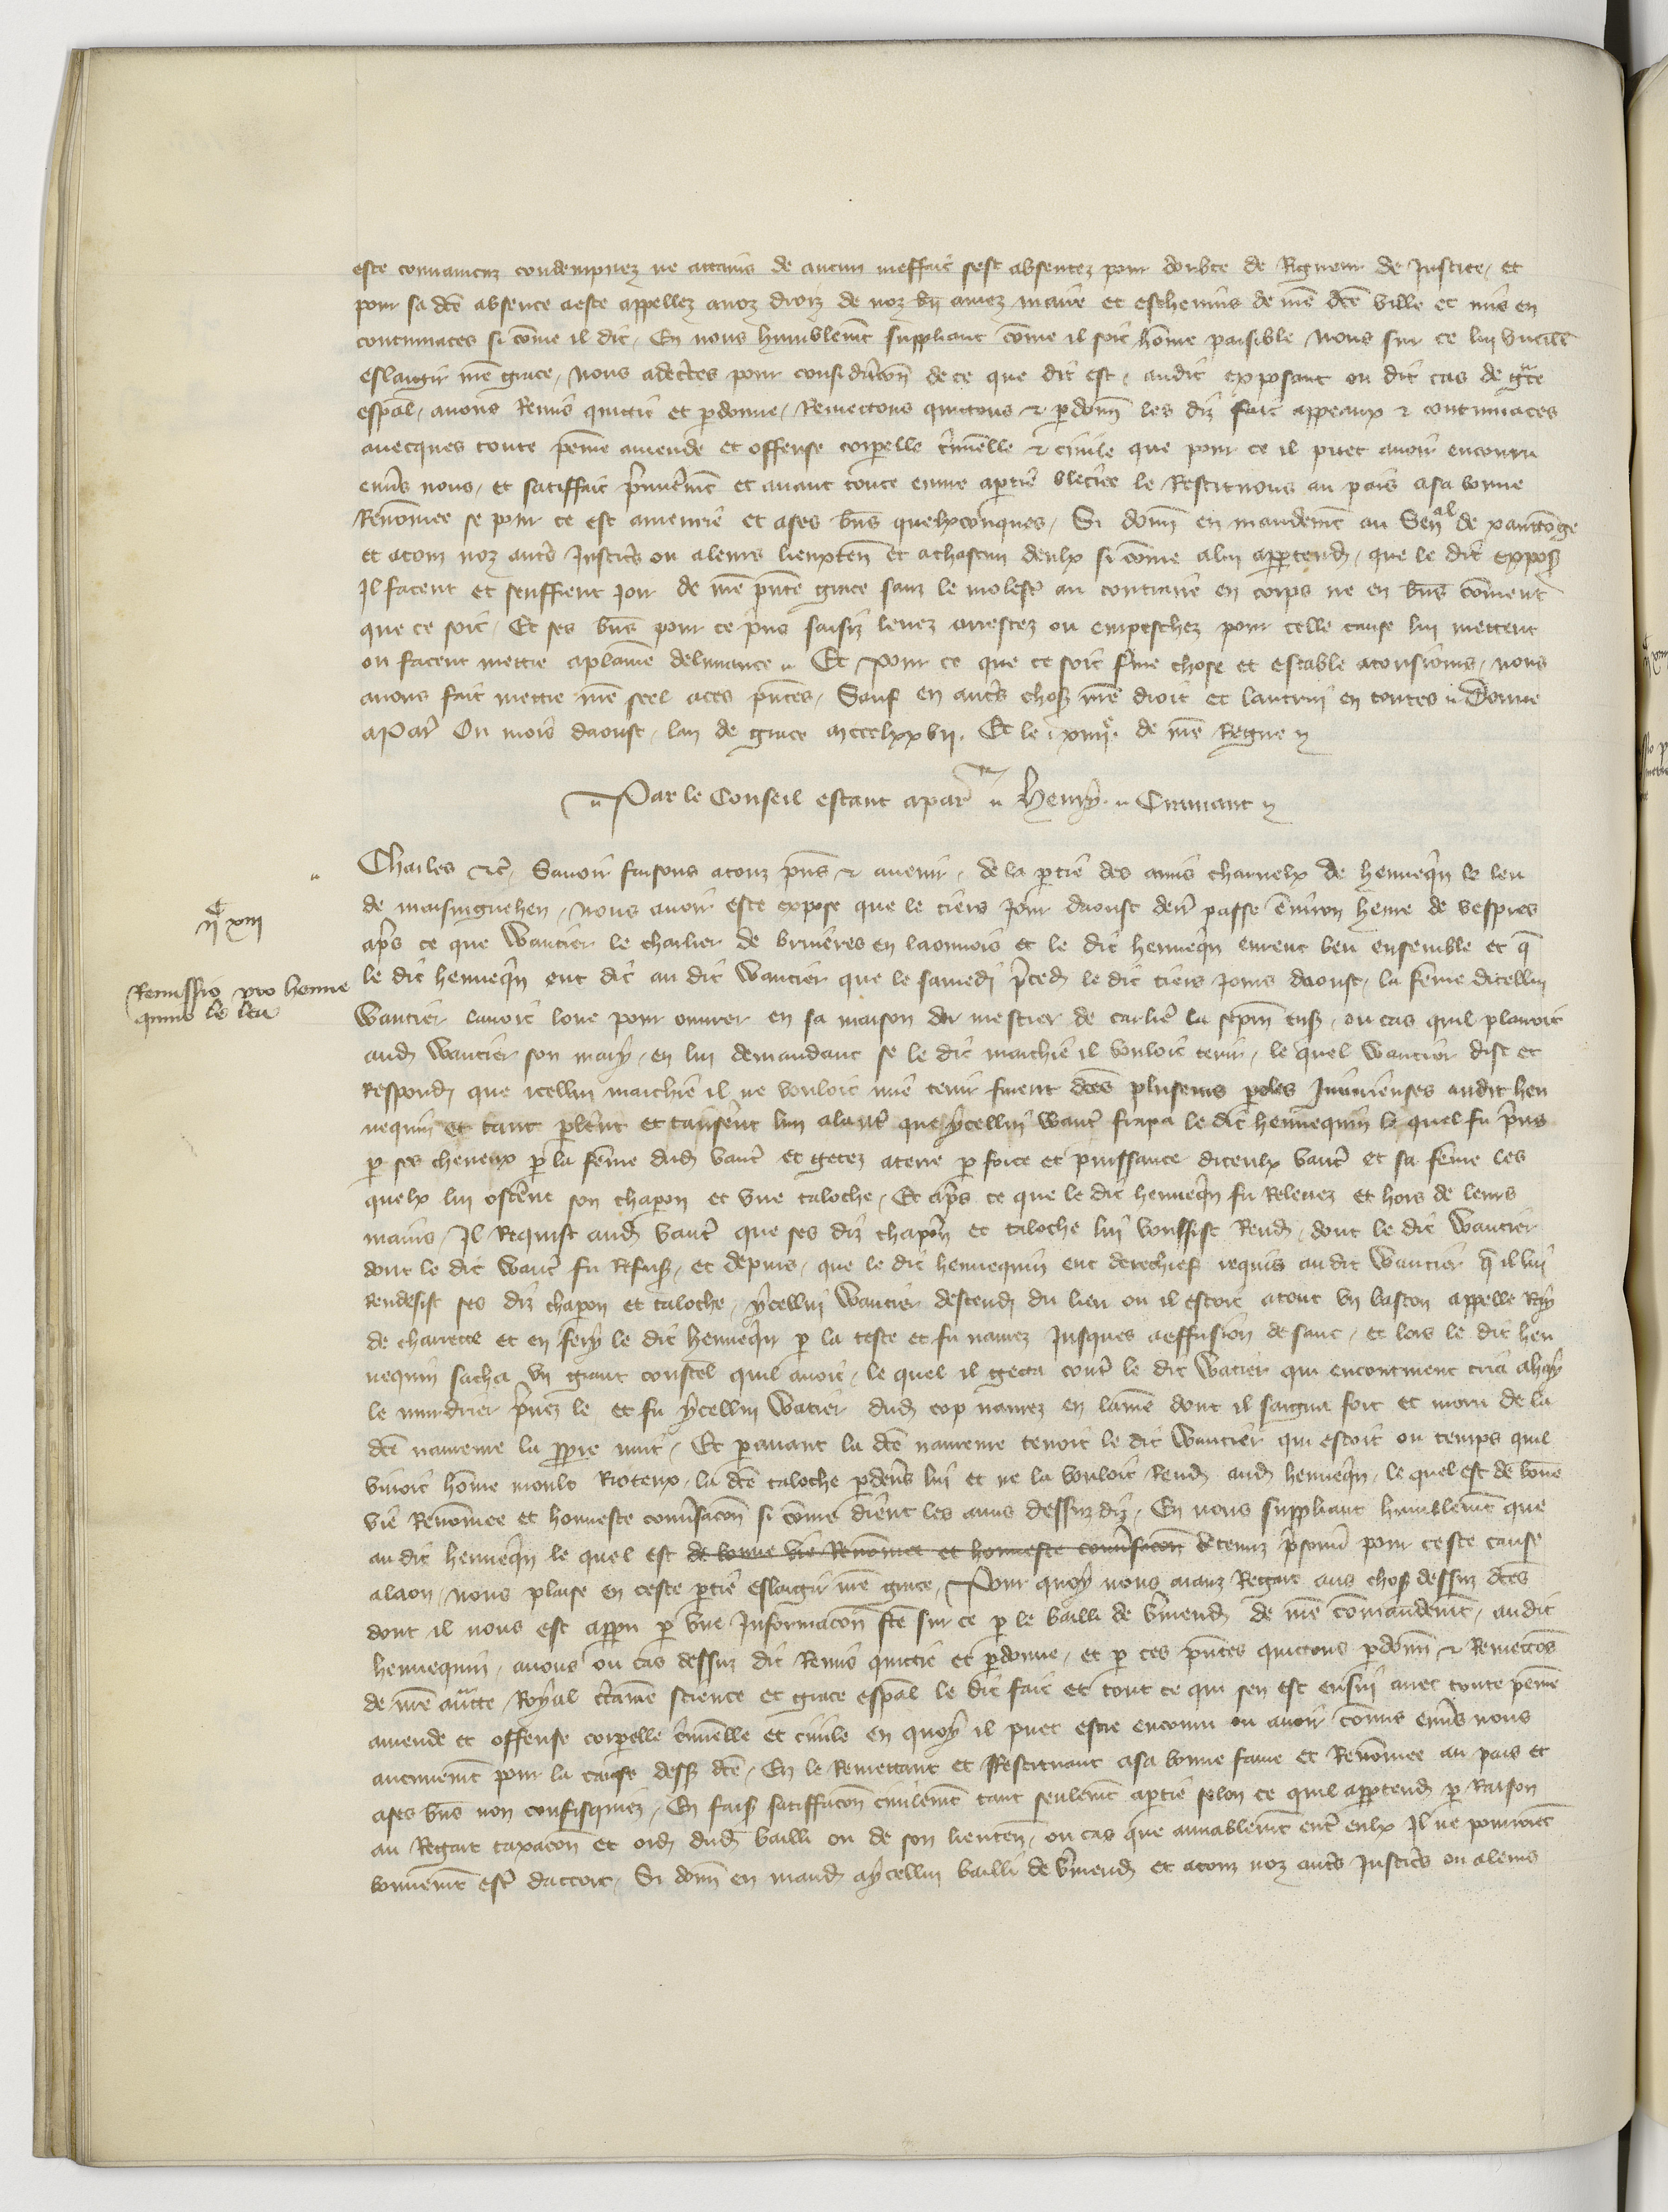 este convaincuz condempnez ne attains de aucun meffait sest absentez pour doubte de Rigueur de Justice / et
pour sa dcē absence aeste appellez anoz droiz de noz bn̄ amez maire et eschevins de nr̄e dcē ville et mis en
contumaces si cōme il dit / En nous humblemt̄ suppliant cōme il soit hōme paisible / nous sur ce lui vueillē
eslargir nr̄e grace / nous adecertes pour consideracōn de ce que dit est / audit exposant ou dit cas de grace
esp̄al / avons Remis quittie et pdonne / Remectons quittons & pdonn̄ les diz fait appeaux & contumaces
avecques toute peine amende et offense corpelle cr̄iminelle & civile que pour ce il puet avoir encouru
env̄s nous / et satisffait p̄mierem̄t et avant toute euvre aptie blecee le Restituons au pais asa bonne
Renōmee se pour ce est amenrie et ases bn̄s quelxconques / Si donn̄ en mandemt̄ au Sen̄al de xantonge
et atouz noz autr̄s Justic̄s ou aleurs lieuxten̄ et achascun deulx si cōme alui appartend̄ / que le dit expos̄
Il facent et seuffrent joir de nr̄e pn̄te grace sanz le molest̄ au contraire en corps ne en bn̄s cōment
que ce soit / Et ses bn̄s pour ce prins saisiz levez arrestez ou empeschez pour celle cause lui mettent
ou facent mettre aplaine delivrance Et pour ce que ce soit ferme chose et estable atousiours / nous
avons fait mettre nr̄e seel aces pn̄tes / Sauf en autr̄s chos̄ nr̄e droit et lautrui en toutes Donne
aPar̄ Ou mois daoust / lan de grace mccclxxvii. Et le xiiiiᵉ. de nr̄e Regne
Par le Conseil estant apar̄ Henry. Cramant
Charles etc̄ / Savoir faisons atouz pn̄s & avenir / de la ptie des amis charnelx de henneqin le leu
de maisinguehen / nous avoir este expose que le tiers jour daoust derr̄ passe environ heure de vespres
apr̄s ce que Wautier le charlier de bruieres en laonnois et le dit henneqin eurent beu ensemble et q̄
le dit henneqin eut dit au dit Wautier que le samedi p̄ced̄ le dit tiers jours daoust / la fēme dicellui
Wautier lavoit loue pour ouvrer en sa maison du mestier de carlier la sepm̄ ens̄ / ou cas quil plairoit
aud̄ Wautier son mary / en lui demandant se le dit marchie il vouloit tenir / le quel Wautier dist et
Respond̄ que icellui marchie il ne vouloit mie tenir furent dc̄es pluseurs paroles Iniurieuses audit hen
nequin et tant plerent et tanserent lun alautr̄ que ycellui Waut̄ frapa le dit hennequin le quel fu prins
p ses cheveux p la fēme dud̄ vaut̄ et getez aterre p force et puissance diceulx vaut̄ et sa fēme les
quelx lui osterent son chapron et une taloche / Et apr̄s ce que le dit henneqin fu Relevez et hors de leurs
mains / Il Requist aud̄ vaut̄ que ses diz chapron et taloche lui voussist Rend̄ / dont le dit Wautier
dont le dit Waut̄ fu Refus̄ / et depuis / que le dit hennequin eut derechief requis audit Wautier q̄ il lui
Rendesist ses diz chapron et taloche / ycellui Wautier descend̄ du lieu ou il estoit atout un baston appelle Ray
de charrette et en fery le dit henneqin p la teste et fu navrez jusques aeffusion de sanc / et lors le dit hen
nequin sacha un grant coustel quil avoit / le quel il gecta contr̄ le dit Watier qui encontinent cria ahay
le murdrier prenez le et fu ycellui Watier dud̄ cop navrez en laine dont il saigna fort et moru de la
dcē navreure la ppre nuit / Et pavant la dcē navreure tenoit le dit Wautier qui estoit ou temps quil
vivoit hōme moult Rioteux / la dcē taloche pdevers lui et ne la vouloit Rend̄ aud̄ henneqin / le quel est de bone
vie Renōmee et honneste conv̄sacōn si cōme dient les amis dessuz diz / En nous suppliant humblemt̄ que
au dit henneqin le quel est de bonne vie Renōmee et honneste conv̄sacōn detenuz p̄sonn̄ pour ceste cause
alaon / nous plaise en ceste ptie eslargir nr̄e grace / Pour quoy nous aianz Regart aus chos̄ dessuz dc̄es
dont il nous est appu p une Informacōn fcē sur ce p le bailli de v̄mend̄ de nr̄e cōmandemt̄ / audit
hennequin / avons ou cas dessuz dit Remis quittie et pdonne / et p ces pn̄tes quictons pdonn̄ & Remectōs
de nr̄e auct̄e Royal c̄taine science et grace esp̄al le dit fait et tout ce qui sen est ensui avec toute peine
amende et offense corpelle cr̄iminelle et civile en quoy il puet estre encouru ou avoir cōmis env̄s nous
aucunemt̄ pour la cause dess̄ dcē / En le Remettant et Restituant asa bonne fame et Renōmee au pais et
ases bn̄s non confisquiez / En fais̄ satiffacōn civilemt̄ tant seulemt̄ aptie selon ce quil apptend̄ p Raison
au Regart taxacōn et ord̄ dud̄ bailli ou de son lieuten̄ / ou cas que amiablemt̄ entr̄ eulx Il ne pourroiēt
bonnemt̄ estr̄ daccort / Si donn̄ en mand̄ aycellui bailli de v̄mend̄ et atouz noz autr̄s Justic̄s ou aleurs
xiii
Remissio pro henne
quino le leu